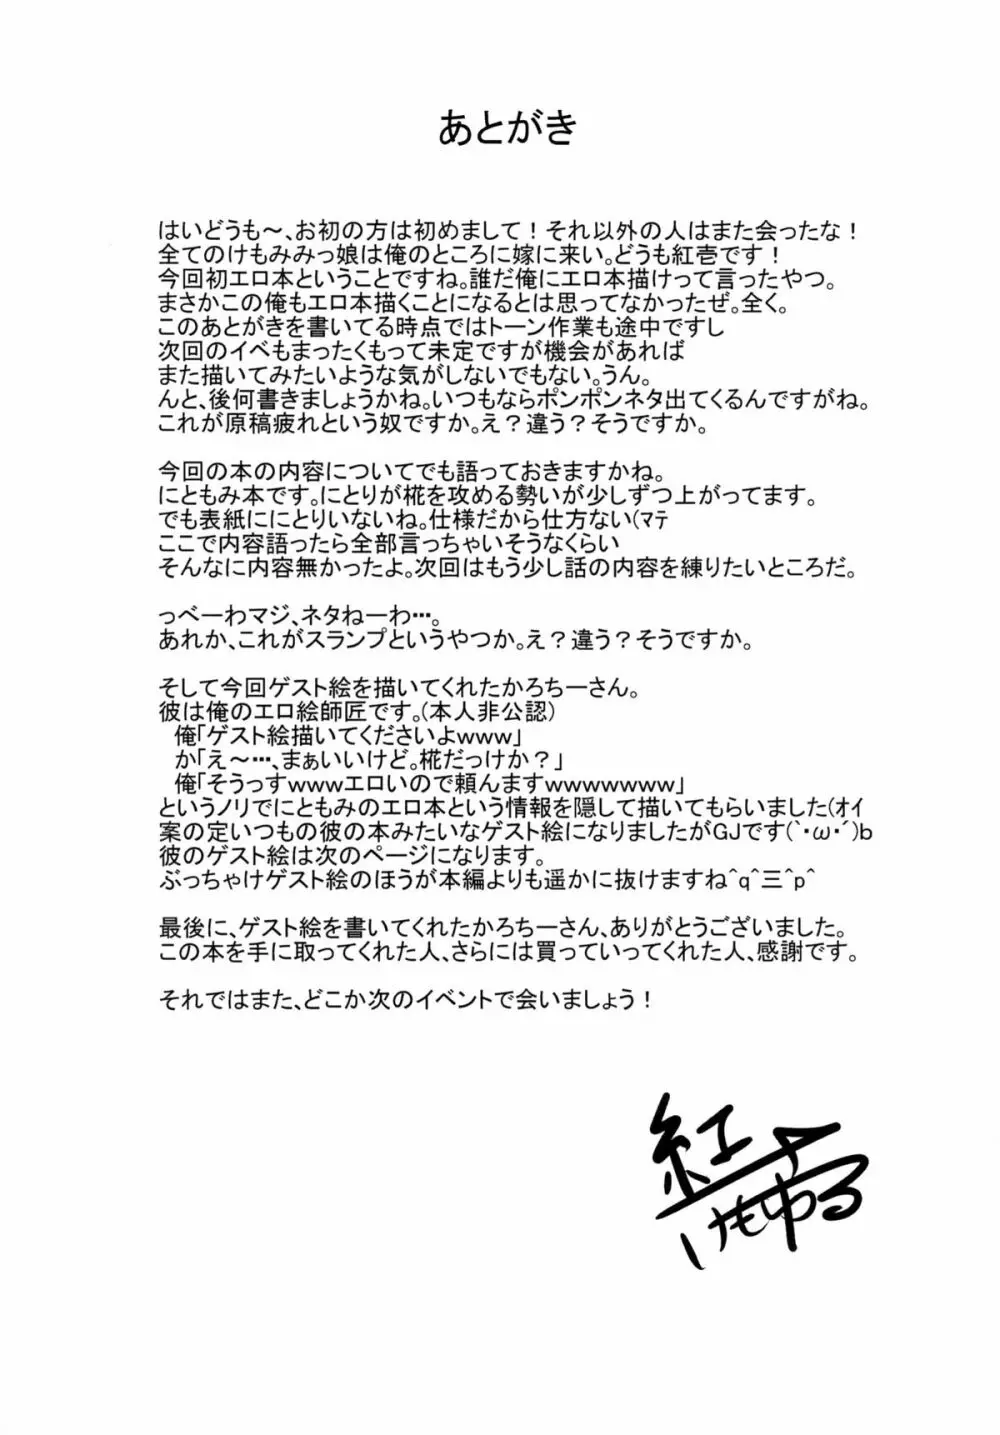 あとがき
はいどうも～、お初の方は初めまして！それ以外の人はまた会ったな！
全てのけもみみっ娘は俺のところに嫁に来い。どうも紅壱です！
今回初エロ本ということですね。誰だ俺にエロ本描けって言ったやつ。
まさかこの俺もエロ本描くことになるとは思ってなかったぜ。全く。
このあとがきを書いてる時点ではトーン作業も途中ですし
次回のイベもまったくもって未定ですが機会があれば
また描いてみたいような気がしないでもない。うん。
んと、後何書きましょうかね。いつもならポンポンネタ出てくるんですがね。
これが原稿疲れという奴ですか。え？違う？そうですか。
今回の本の内容についてでも語っておきますかね。
にともみ本です。にとりが椛を攻める勢いが少しずつ上がってます。
でも表紙ににとりいないね。仕様だから仕方ない(ﾏﾃ
ここで内容語ったら全部言っちゃいそうなくらい
そんなに内容無かったよ。次回はもう少し話の内容を練りたいところだ。
っべーわマジ、ネタねーわ…。
あれか、これがスランプというやつか。え？違う？そうですか。
そして今回ゲスト絵を描いてくれたかろちーさん。
彼は俺のエロ絵師匠です。(本人非公認)
俺「ゲスト絵描いてくださいよｗｗｗ」
か「え～…、まぁいいけど。椛だっけか？」
俺「そうっすｗｗｗエロいので頼んますｗｗｗｗｗｗｗ」
というノリでにともみのエロ本という情報を隠して描いてもらいました(ｵｲ
案の定いつもの彼の本みたいなゲスト絵になりましたがGJです(`･ω･´)b
彼のゲスト絵は次のページになります。
ぶっちゃけゲスト絵のほうが本編よりも遥かに抜けますね^q^三^p^
最後に、ゲスト絵を書いてくれたかろちーさん、ありがとうございました。
この本を手に取ってくれた人、さらには買っていってくれた人、感謝です。
それではまた、どこか次のイベントで会いましょう！